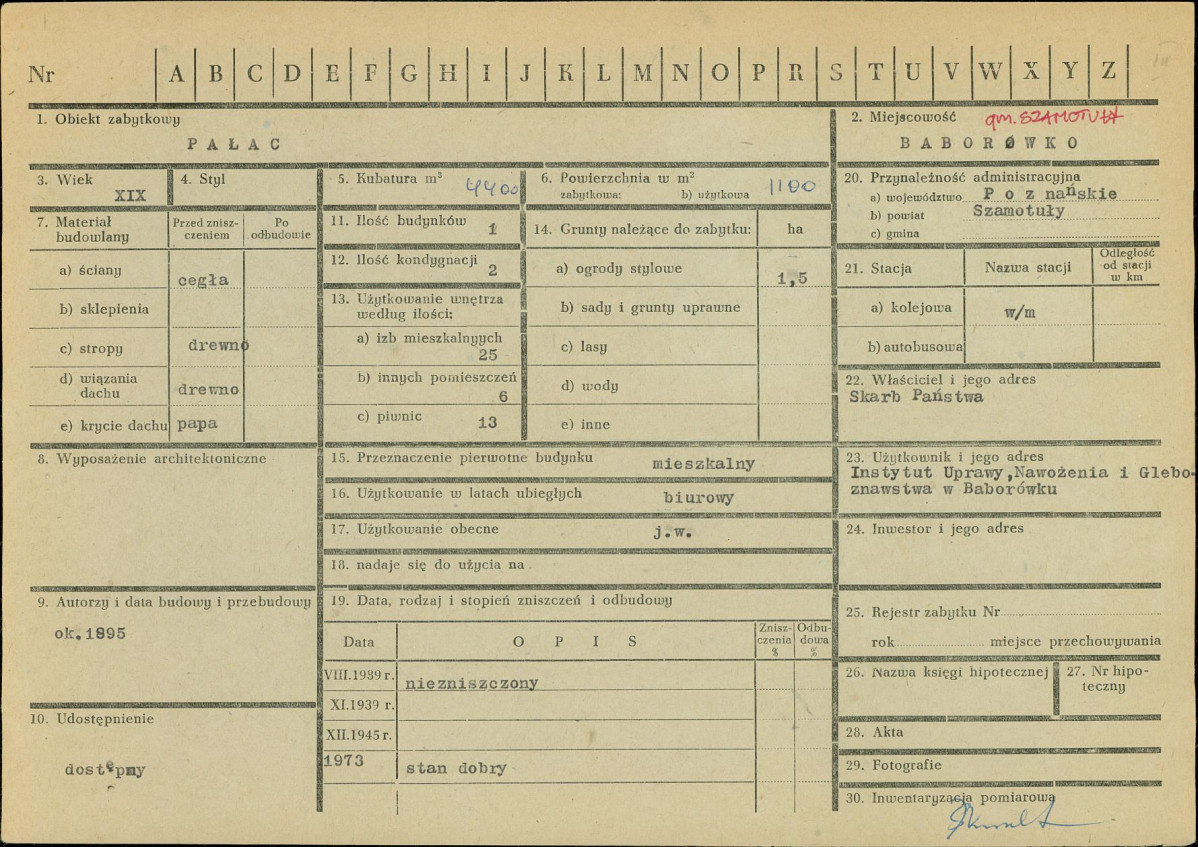 Nr A B C D E F G H I J K L M N O P R S T U V W X Y Z
1. Obiekt zabytkowy
PAŁAC
2. Miejscowość gm. SZAMOTUŁY
BABORÓWKO
3. Wiek
XIX
4. Styl
5. Kubatura m³ 4400
6. Powierzchnia w m² 1100
zabytkowa: b) użytkowa
20. Przynależność administracyjna
a) województwo Poznańskie
b) powiat Szamotuły
c) gmina
7. Materiał budowlany
Przed zniszczeniem
Po odbudowie
a) ściany cegła
b) sklepienia
c) stropy drewno
d) wiązania dachu drewno
e) krycie dachu papa
11. Ilość budynków 1
12. Ilość kondygnacji 2
13. Użytkowanie wnętrza
według ilości:
a) izb mieszkalnyych
25
b) innych pomieszczeń
6
c) piwnic 13
14. Grunty należące do zabytku: ha
a) ogrody stylowe 1,5
b) sady i grunty uprawne
c) lasy
d) wody
e) inne
21. Stacja
Nazwa stacji
Odległość
od stacji
w km
a) kolejowa w/m
b) autobusowa
22. Właściciel i jego adres
Skarb Państwa
8. Wyposażenie architektoniczne
15. Przeznaczenie pierwotne budynku mieszkalny
16. Użytkowanie w latach ubiegłych biurowy
17. Użytkowanie obecne j.w.
18. nadaje się do użycia na
23. Użytkownik i jego adres
Instytut Uprawy,Nawożenia i Glebo-
znawstwa w Baborówku
24. Inwestor i jego adres
9. Autorzy i data budowy i przebudowy
ok.1895
19. Data, rodzaj i stopień zniszczeń i odbudowy
Data
OPIS
Znisz-
czenia
%
Odbu-
dowa
%
VIII.1939 r. niezniszczony
XI.1939 r.
XII.1945 r.
1973 stan dobry
25. Rejestr zabytku Nr
rok miejsce przechowywania
26. Nazwa księgi hipotecznej
27. Nr hipo-
teczny
10. Udostępnienie
dostępny
28. Akta
29. Fotografie
30. Inwentaryzacja pomiarowa